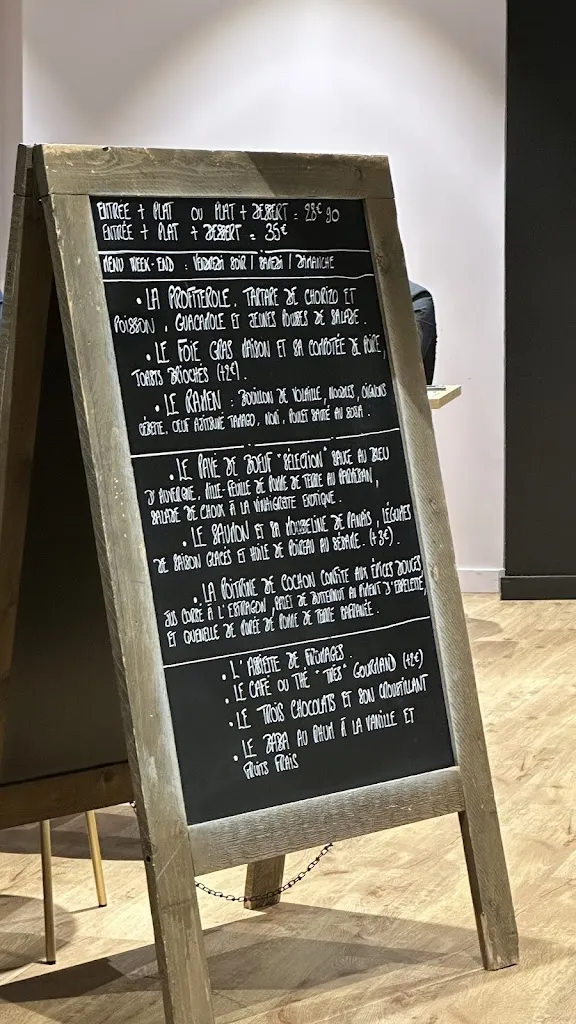 ENTRÉE + PLAT OU PLAT + DESSERT = 28€90
ENTRÉE + PLAT + DESSERT = 35€
MENU WEEK-END : VENDREDI SOIR / SAMEDI / DIMANCHE
• LA PROFITEROLE, TARTARE DE CHORIZO ET
POISSON, GUACAMOLE ET JEUNES POUSSES DE SALADE.
• LE FOIE GRAS MAISON ET SA COMPOTÉE DE POIRE,
TOASTS BRIOCHÉS (+2€).
• LE RAMEN : BOUILLON DE VOLAILLE, NOODLES, OIGNONS
CÉBETTE, OEUF AJITSUKE TAMAGO, NORI, POULET SAUTÉ AU SOJA.
• LE PAVÉ DE BOEUF "SÉLECTION" SAUCE AU BLEU
D'AUVERGNE, MILLE-FEUILLE DE POMME DE TERRE AU PARMESAN,
SALADE DE CHOUX À LA VINAIGRETTE EXOTIQUE.
• LE SAUMON ET SA MOUSSELINE DE PANAIS, LÉGUMES
DE SAISON GLACÉS ET HUILE DE POIREAU AU SÉSAME. (+3€).
• LA POITRINE DE COCHON CONFITE AUX ÉPICES DOUCES,
JUS CORSÉ À L'ESTRAGON, PALET DE BUTTERNUT AU PIMENT D'ESPELETTE,
ET QUENELLE DE PURÉE DE POMME DE TERRE SAFRANÉE.
• L'ASSIETTE DE FROMAGES.
• LE CAFÉ OU THÉ "TRÈS" GOURMAND (+2€)
• LE TROIS CHOCOLATS ET SON CROUSTILLANT
• LE BABA AU RHUM À LA VANILLE ET
FRUITS FRAIS